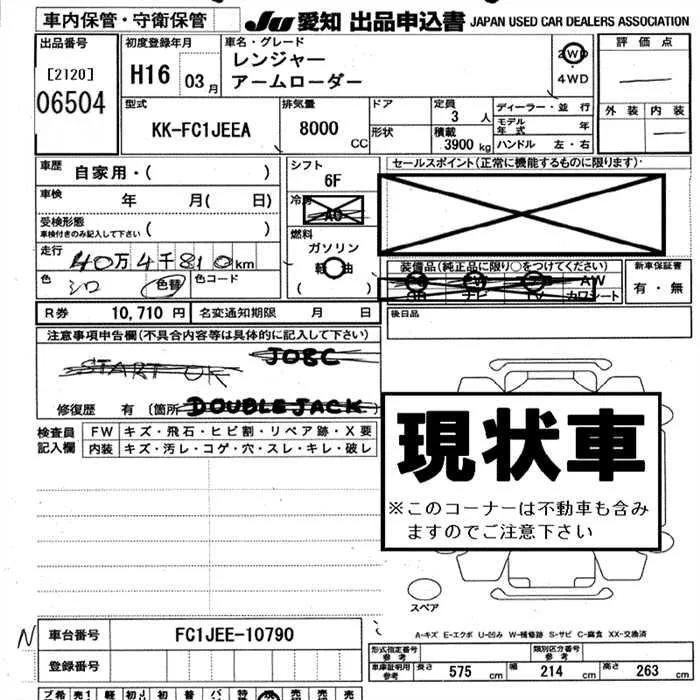 車内保管・守衛保管
JU 愛知 出品申込書 JAPAN USED CAR DEALERS ASSOCIATION
出品番号
[2120]
06504
初度登録年月
H16 03月
車名・グレード
レンジャー
アームローダー
2WD
・
4WD
評価点
外装 内装
型式
KK-FC1JEEA
排気量
8000
CC
ドア
形状
定員
3 人
積載
3900 kg
ディーラー・並行
モデル年式 年
ハンドル 左・右
車歴
自家用・( )
車検
年 月( 日)
受検形態
車検付きのみ記入して下さい ( )
走行
40万4千810km
色
シロ
色替
色コード
シフト
6F
冷房
AC
燃料
ガソリン
軽油
( )
セールスポイント(正常に機能するものに限ります)
装備品(純正品に限り○をつけてください)
SR ナビ TV AW カワシート
新車保証書
有・無
R券 10,710 円
名変通知期限 月 日
後日品
注意事項申告欄(不具合内容等は具体的に記入して下さい)
JOBC
START OK
修復歴 有 (箇所 DOUBLE JACK )
検査員
記入欄
FW キズ・飛石・ヒビ割・リペア跡・X要
内装 キズ・汚レ・コゲ・穴・スレ・キレ・破レ
現状車
※このコーナーは不動車も含み
ますのでご注意下さい
スペア
A-キズ E-エクボ U-凹み W-補修跡 S-サビ C-腐食 XX-交換済
N
車台番号 FC1JEE-10790
登録番号
形式指定番号
参考
類別区分番号
参考
車庫証明用
参考
長さ 575 cm
幅 214 cm
高さ 263 cm